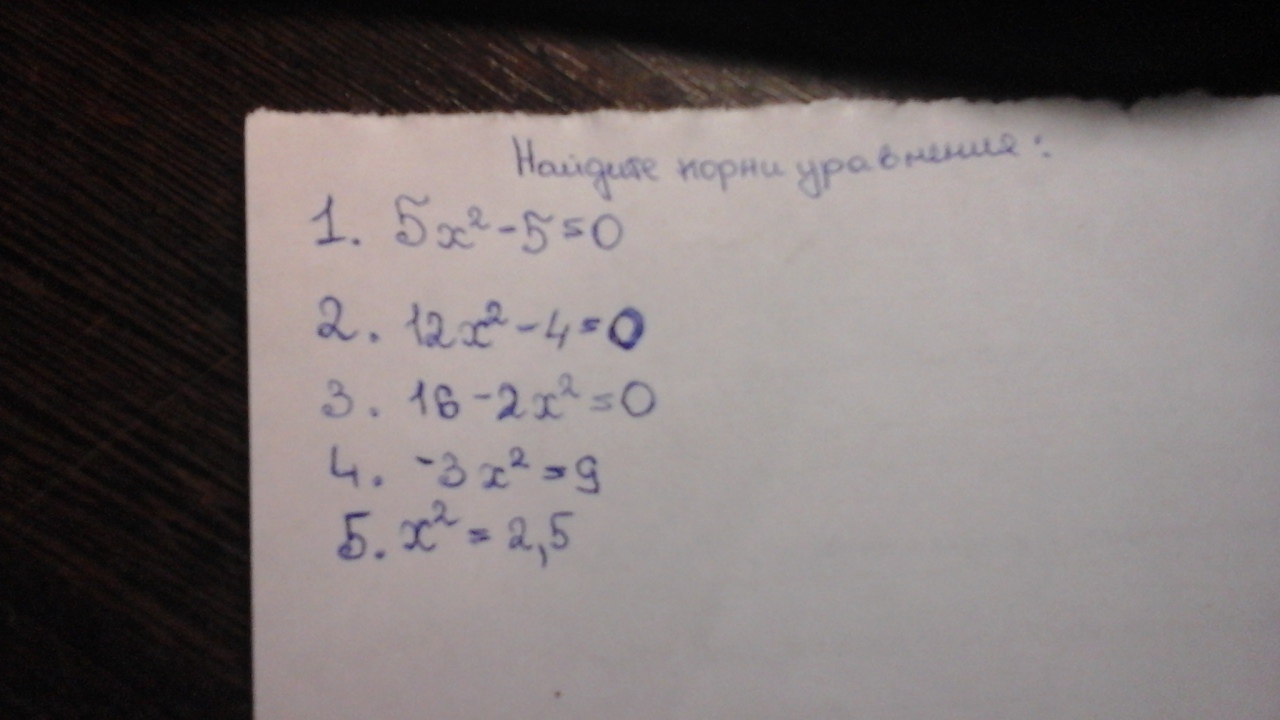 Найдите корни уравнения:
1. 5x²-5=0
2. 12x²-4=0
3. 16-2x²=0
4. -3x²=9
5. x²=2,5